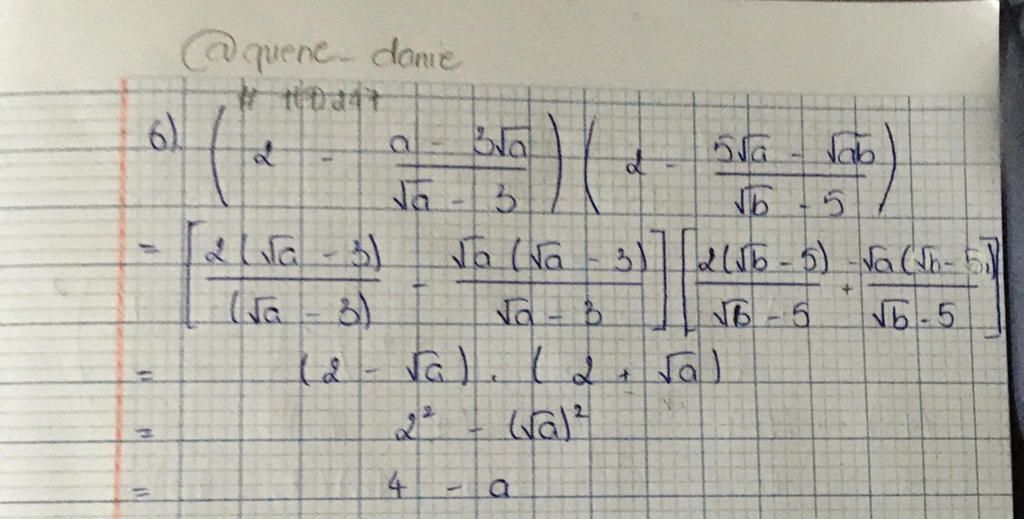 @quene_danie
6) (2 - (a - 3√a)/(√a - 3)) (2 - (5√a - √ab)/(√b - 5))
= [2(√a - 3)/(√a - 3) - √a(√a - 3)/(√a - 3)] [2(√b - 5)/(√b - 5) + -√a(√b - 5)/(√b - 5)]
= (2 - √a) . (2 + √a)
= 2² - (√a)²
= 4 - a